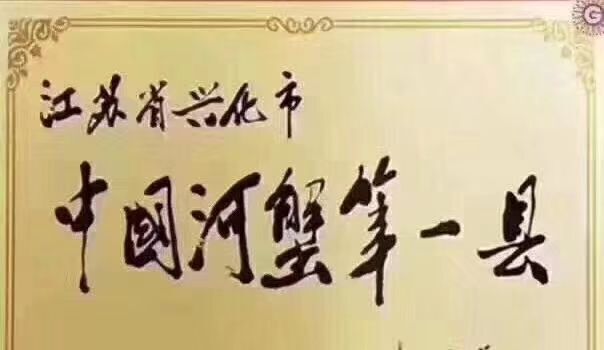 江苏省兴化市
中国河蟹第一县